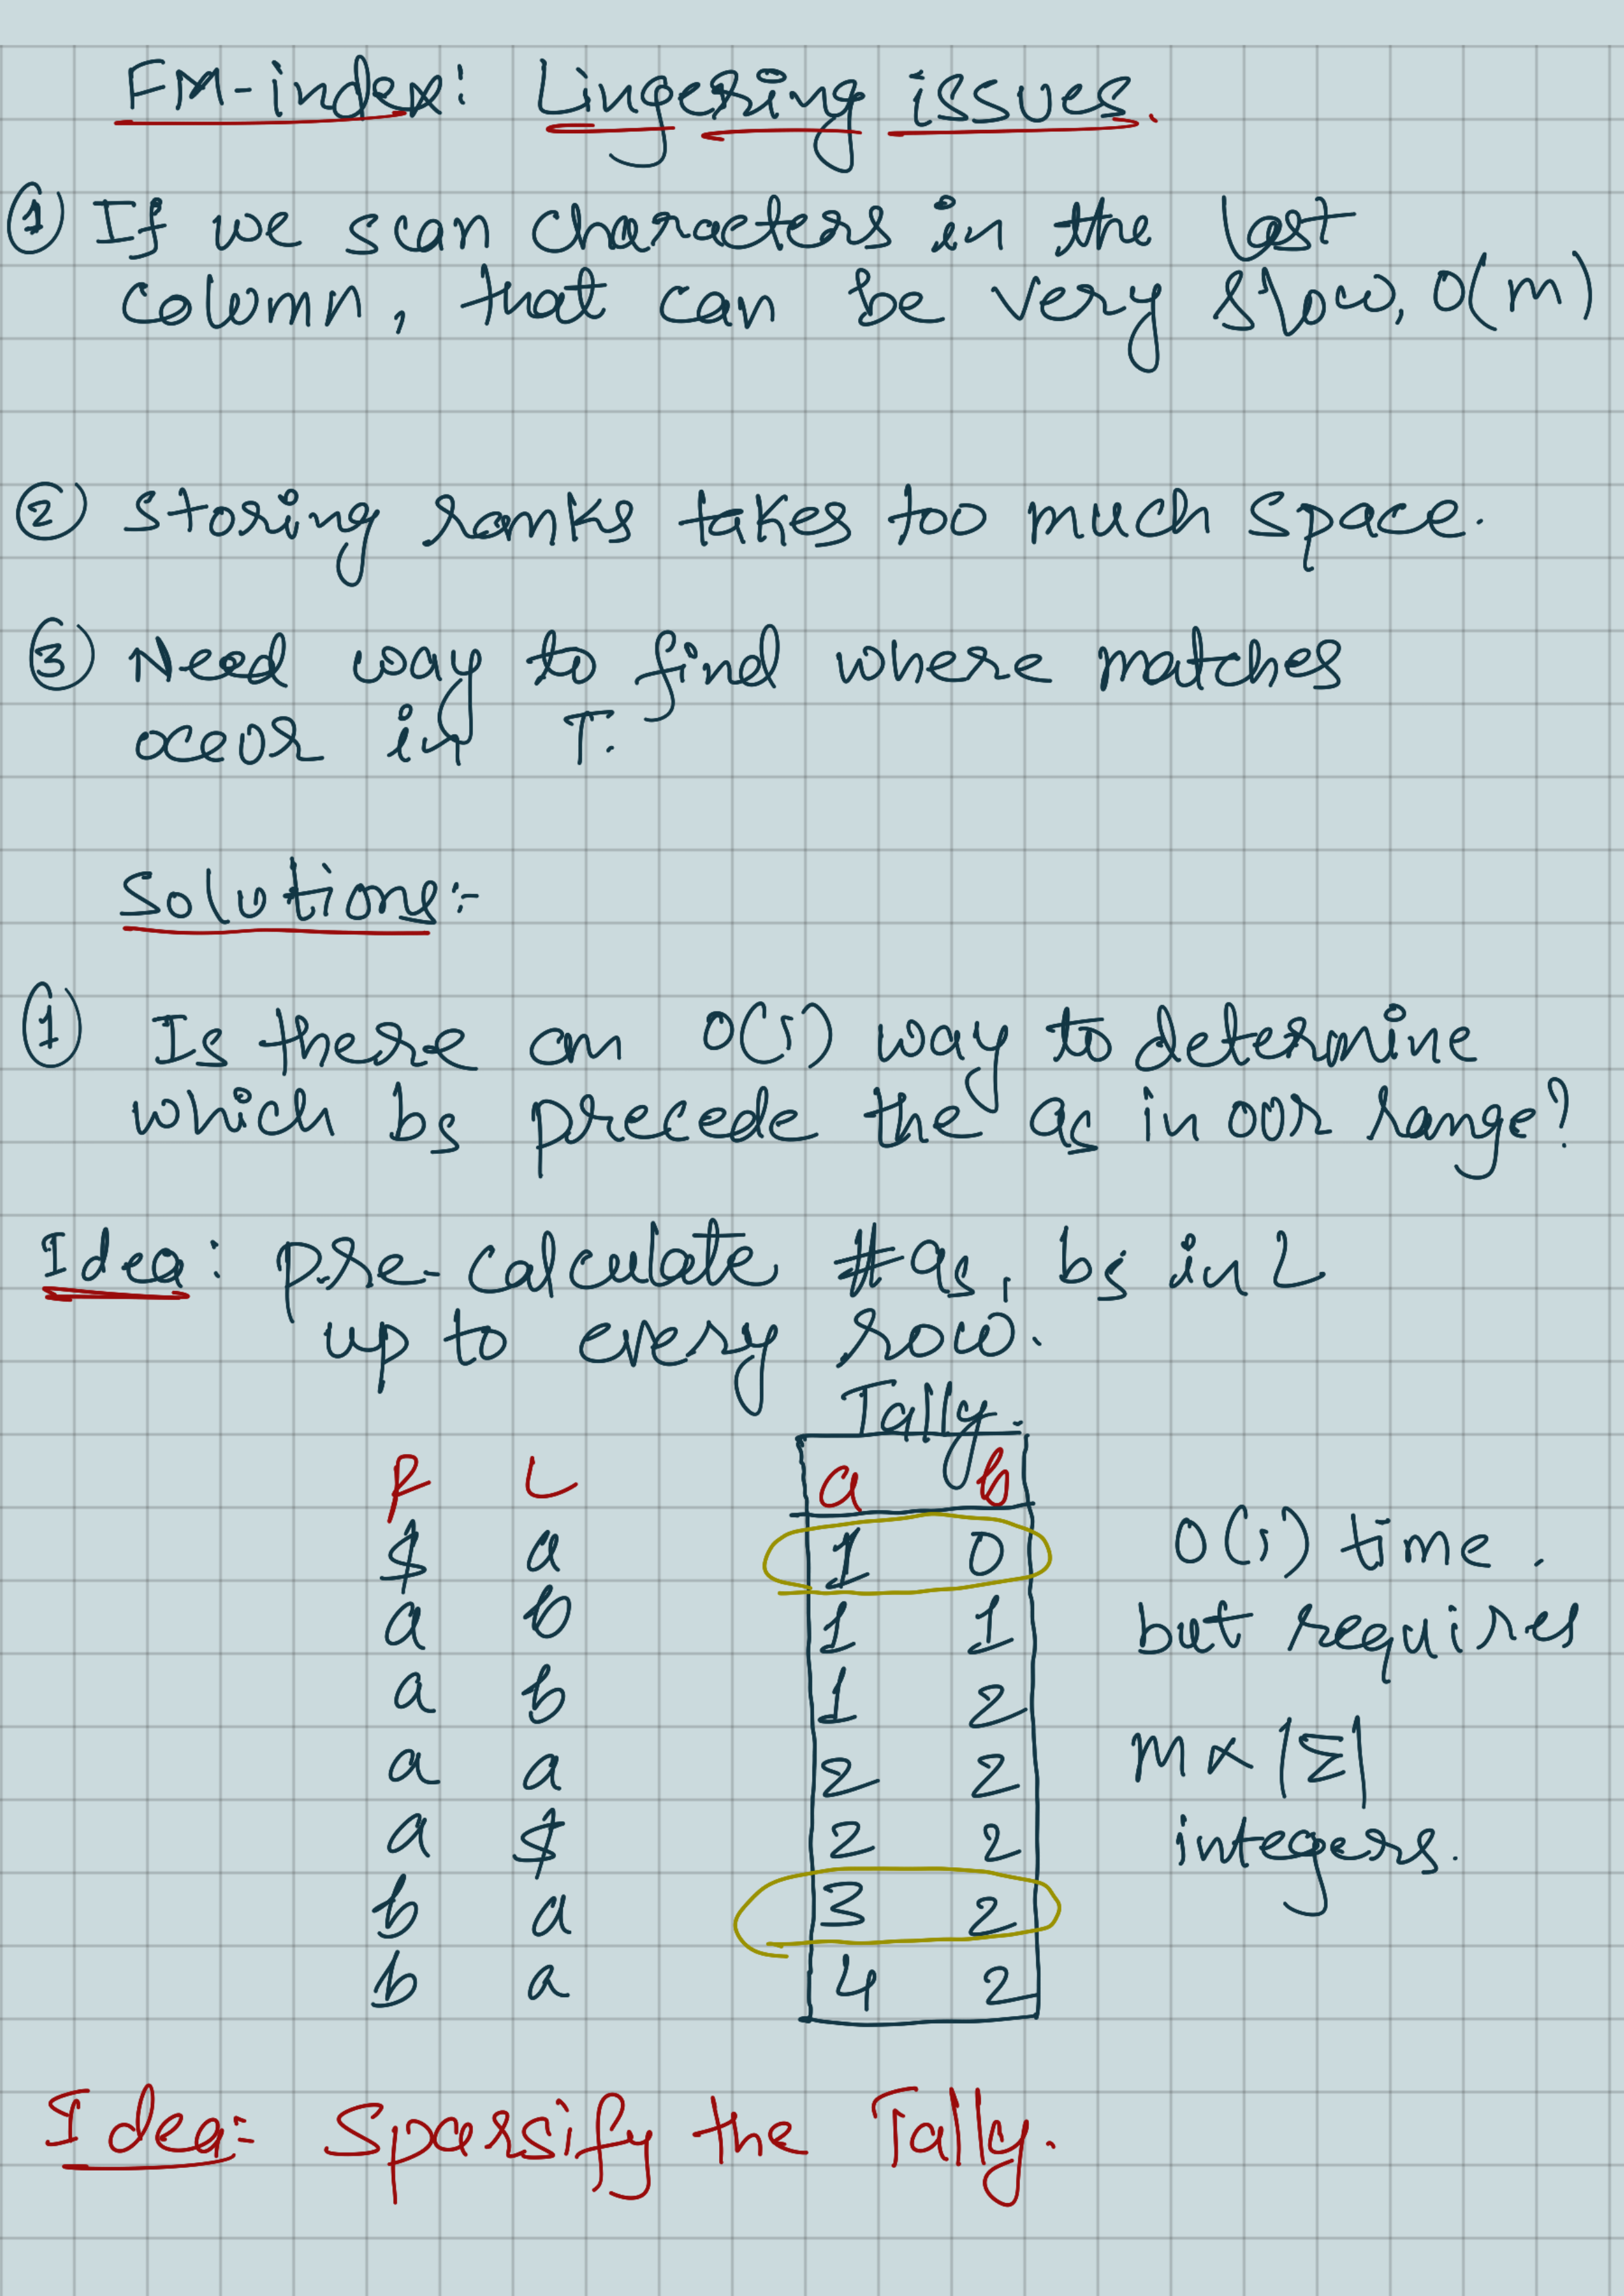 FM-index: Lingering issues.
① If we scan characters in the last
column, that can be very slow, O(m)
② Storing ranks takes too much space.
③ Need way to find where matches
occur in T.
Solutions:-
① Is there an O(1) way to determine
which bs precede the as in our range?
Idea: pre-calculate #as, bs in L
up to every row.
Tally.
F L a b
$ a 1 0
a b 1 1
a b 1 2
a a 2 2
a $ 2 2
b a 3 2
b a 4 2
O(1) time.
but requires
m × |Σ|
integers.
Idea:- Sparsify the Tally.